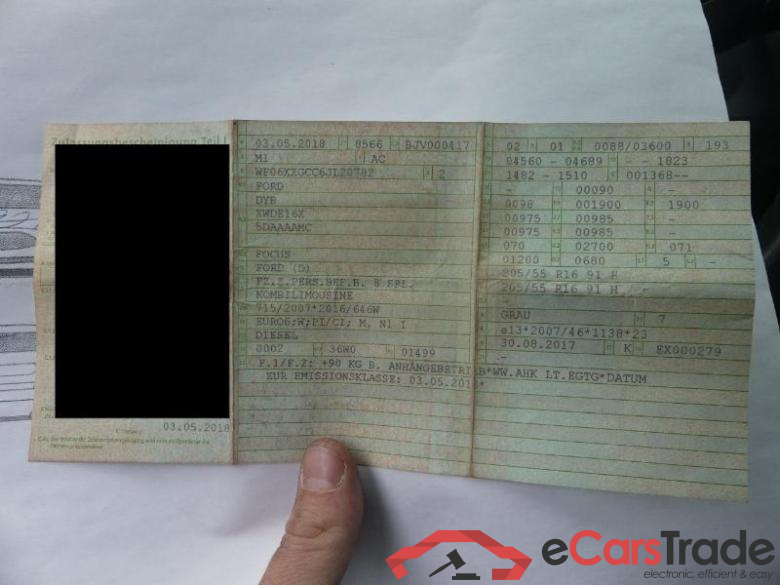 Zulassungsbescheinigung Teil I
03.05.2018 8566 BJV000417
M1 AC
2
FORD
DYB
XWDE16X
5DAAAAMC
FOCUS
FORD (D)
FZ.Z.PERS.BEF.B. 8 SPL.
KOMBILIMOUSINE
715/2007*2016/646W
EURO6;W;PI/CI; M, N1 I
DIESEL
0002 36W0 01499
F.1/F.2: +90 KG B. ANHÄNGEBETRIEB*WW.AHK LT.EGTG*DATUM
ZUR EMISSIONSKLASSE: 03.05.2018*
02 01 0088/03600 193
04560 - 04689 - - 1823
1482 - 1510 001368--
- 00090 -
0098 001900 1900
00975 00985 -
00975 00985 -
070 02700 071
01200 0680 5 -
205/55 R16 91 H
205/55 R16 91 H
-
GRAU 7
e13*2007/46*1138*23
30.08.2017 K EX000279
-
03.05.2018
eCarsTrade
electronic, efficient & easy